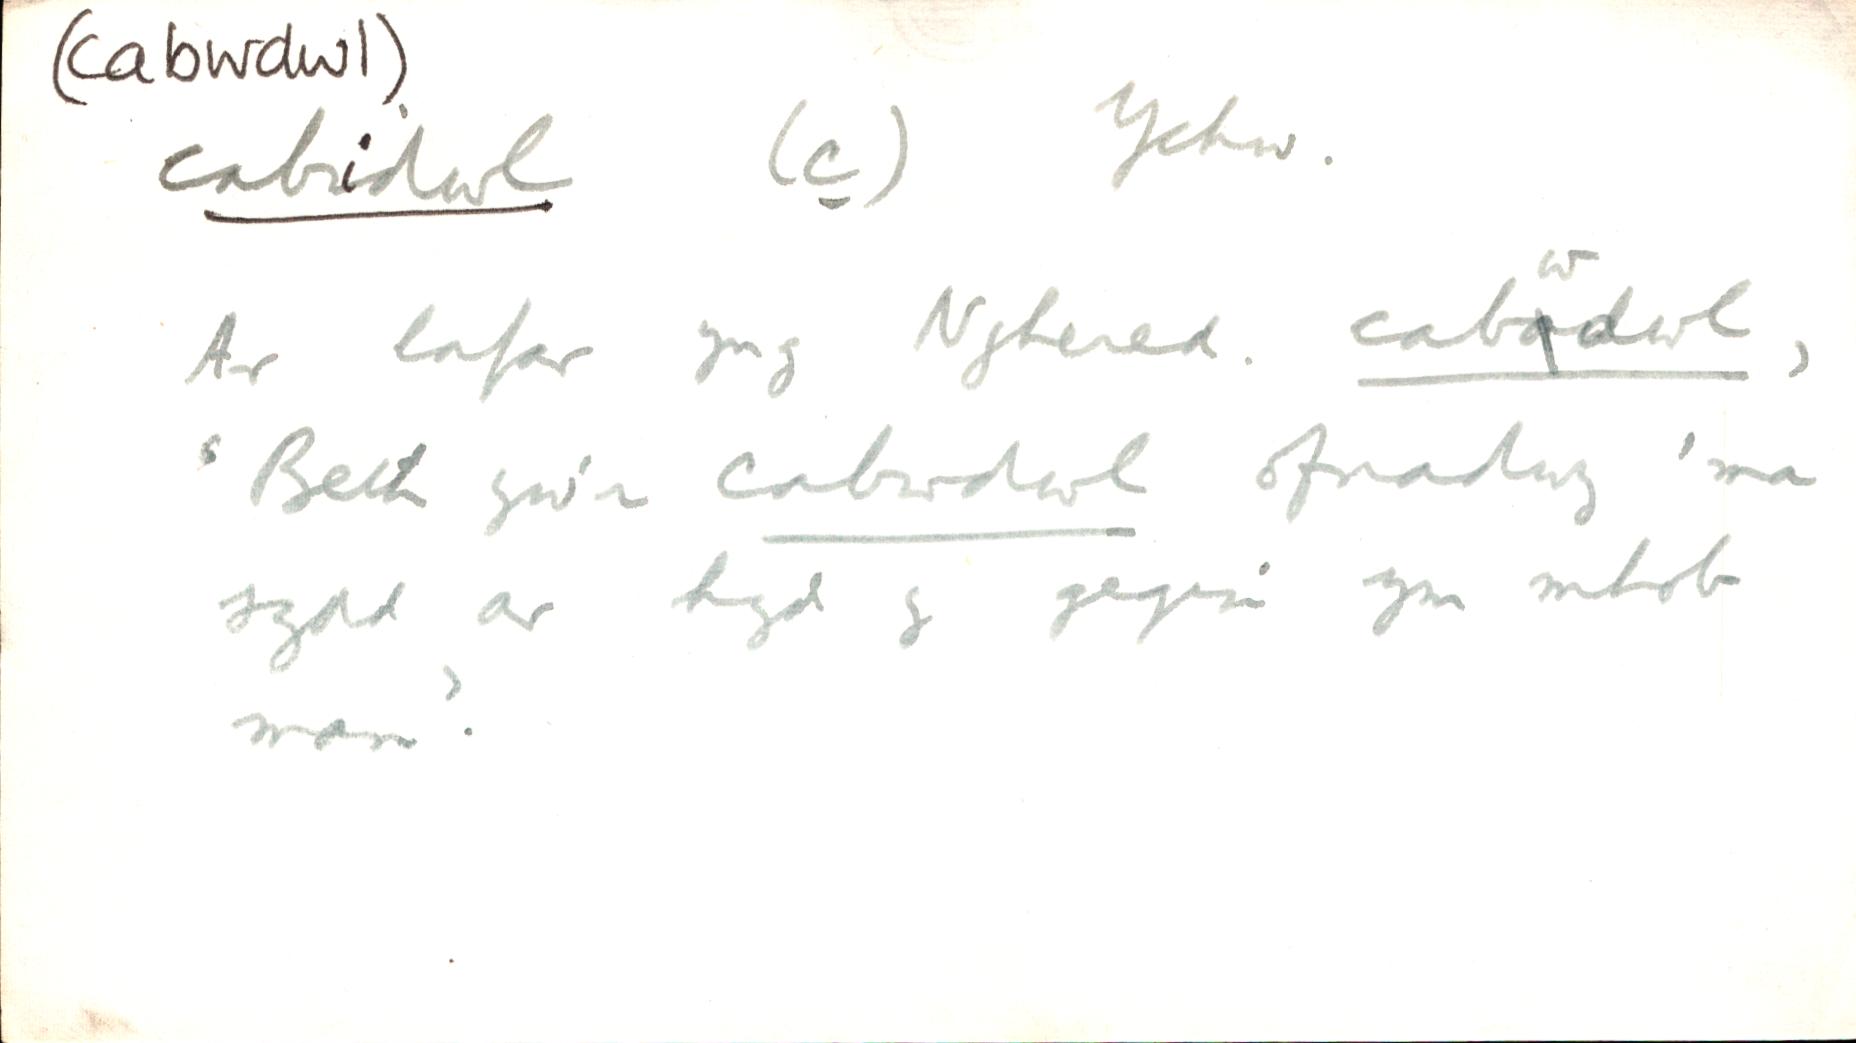 (cabwdwl)
cabidwl (c) Ychw.
Ar lafar yng Nghered. cabwdwl,
'Beth yw'r cabwdwl ofnadwy 'ma
sydd ar hyd y gegin ym mhob
man'.